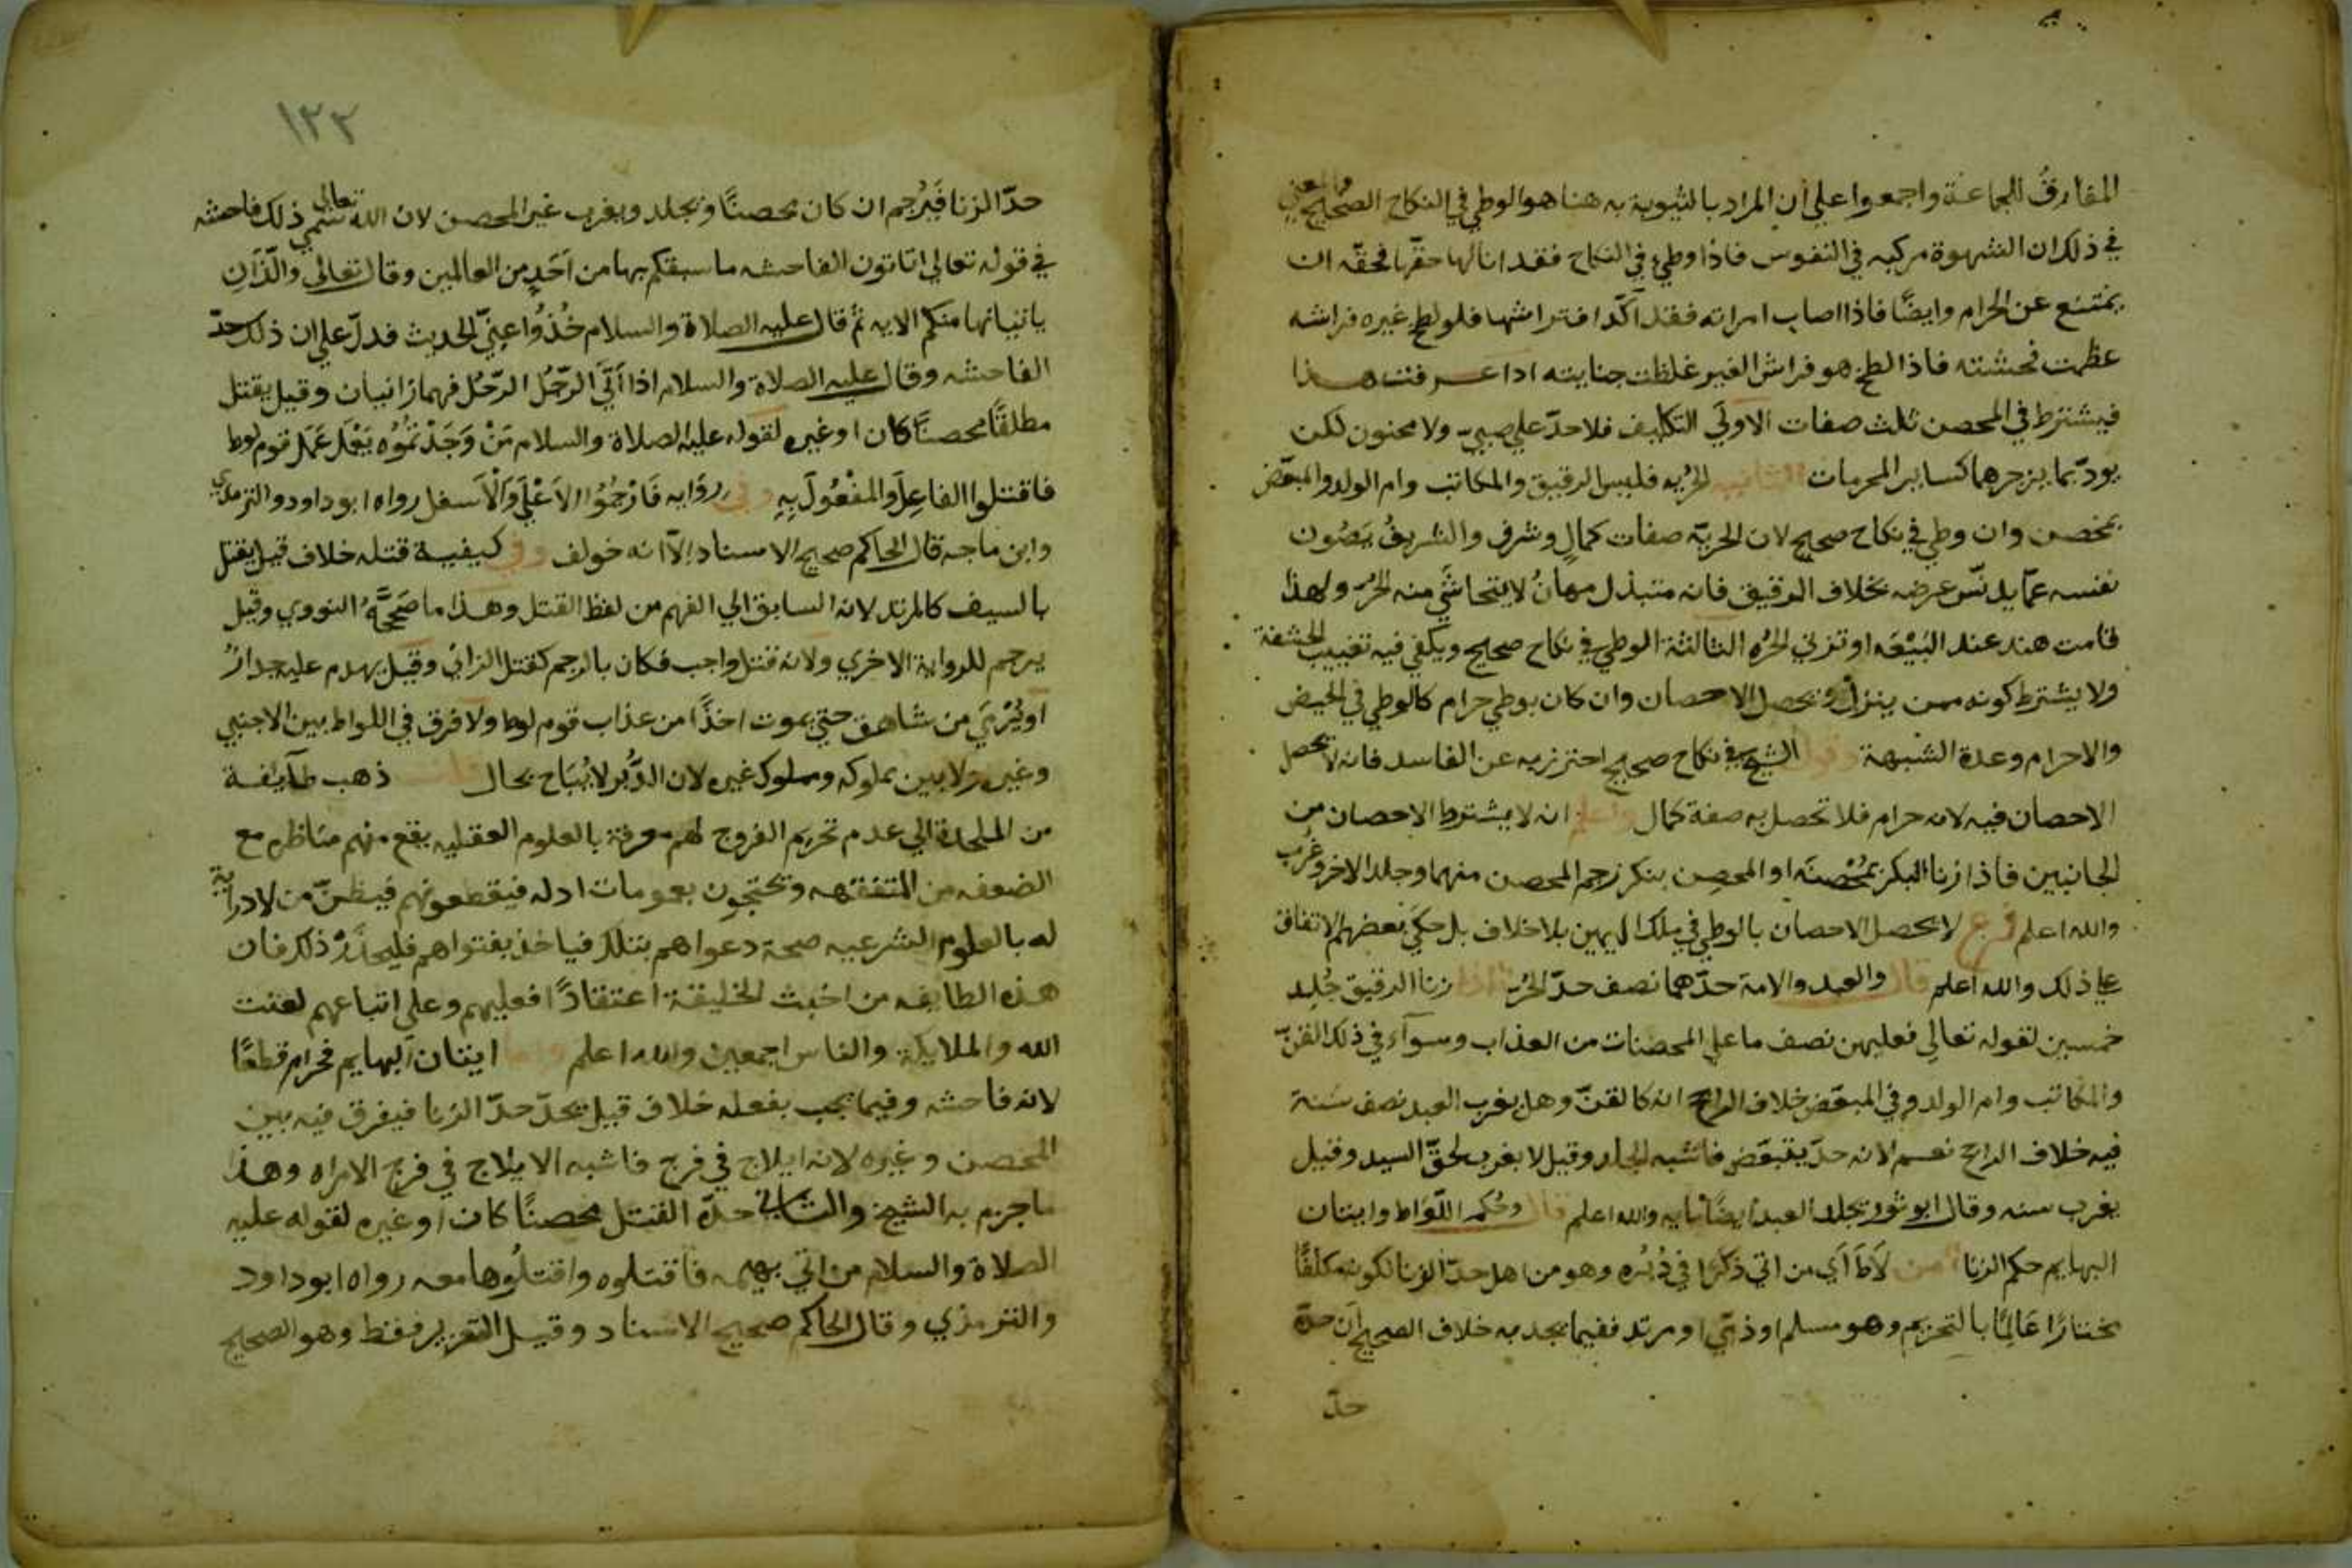 المفارق للجماعة واجمعوا علي أن المراد بالثيوبة به هنا هو الوطي في النكاح الصحيح والمعني
في ذلك ان الشهوة مركبه في النفوس فاذا وطي في النكاح فقد انالها حقها فحقه ان
يمتنع عن الحرام وايضًا فاذا اصاب امراته فقد اكّد افتراشها فلو لطخ غيره فراشه
عظمت فحشته فاذا لطخ هو فراش الغير غلظت جنايته اذا عرفت هذا
فيشترط في المحصن ثلث صفات الاولي التكليف فلا حدّ علي صبيّ ولا مجنون لكن
يودّبا بما يزجرهما كساير المحرمات الثانيه الحريه فليس الرقيق والمكاتب وام الولد والمبعّض
بمحصن وان وطي في نكاح صحيح لان الحريّة صفات كمالٍ وشرف والشريفُ يَصُون
نفسه عمّا يدنّس عرضه بخلاف الرقيق فانه متبذل مهانٌ لا يتحاشَي منه الحرّ ولهذا
قامت هند عند البَيْعَه او تزني الحُره الثالثة الوطي في نكاح صحيح ويكفي فيه تغييب الحشفة
ولا يشترط كونه ممن ينزل ويحصل الاحصان وان كان بوطي حرام كالوطي في الحيض
والاحرام وعدة الشبهة وقول الشيخ في نكاح صحيح احترز به عن الفاسد فانه لا يحصل
الاحصان فيه لانه حرام فلا تحصل به صفة كمال واعلم انه لا يشترط الاحصان من
الجانبين فاذا زنا البكر بمُحْصنَه او المحصِن ببكر رجم المحصن منهما وجلد الاخر وغرب
والله اعلم فرع لا يحصل الاحصان بالوطي في ملك اليمين بلا خلاف بل حكَي بعضهم الاتفاق
علي ذلك والله اعلم قال والعبد والامة حدّهما نصف حدّ الحُرّ اذا زنا الرقيق جُلِد
خمسين لقوله تعالي فعليهن نصف ما علي المحصنات من العذاب وسوآء في ذلك القنّ
والمكاتب وام الولد وفي المبعّض خلاف الراجح انه كالقنّ وهل يغرب العبد نصف سَنة
فيه خلاف الراجح نعم لانه حدّ يتبعّض فاشبه الجلد وقيل لا يغرب لحقّ السيد وقيل
يغرب سنه وقال ابو ثور يجلد العبد ايضًا مايه والله اعلم قال وحُكم اللّوَاط واتيان
البهايم حكم الزنا من لَاطَ أي من اتي ذكرًا في دُبُره وهو من اهل حدّ الزنا لكونه مكلفًا
مختارًا عَالِمًا بالتحريم وهو مسلم او ذمّي او مرتد ففيما يحد به خلاف الصحيح أن حدّه
حدّ
١٢٢
حدّ الزنا فَيُرجم ان كان محصنًا ويجلد ويغرب غير المحصن لان الله تعالي سَمّي ذلك فاحشه
في قوله تعالي اتاتون الفاحشه ما سبقكم بها من اَحَدٍ من العالمين وقال تعالي والّذَانِ
ياتيانها منكم الايه ثم قال عليه الصلاة والسلام خُذُوا عنِّي الحديث فدلّ علي ان ذلك حدّ
الفاحشه وقال عليه الصلاة والسلام اذا أتَي الرّجُل الرّجُل فهما زانيان وقيل يقتل
مطلقًا محصنًا كان او غيره لقوله عليه الصلاة والسلام مَنْ وَجَدْتمُوُه يَعْمَل عَمَل قوم لوط
فاقتلوا الفاعِلَ والمفْعُولَ بِهِ وفي روَايه فَارْجُمُوا الاَعْلَي وَالْاَسفل رواه ابو داود والترمذي
وابن ماجه قال الحاكم صحيح الاسناد إلاّ انه خولف وفي كيفيه قتله خلاف قيل يقتل
بالسيف كالمرتد لانه السابق الي الفهم من لفظ القتل وهذا ما صَحَّحَهُ النووي وقيل
يرجم للرواية الاخري ولانه قتل واجب فكان بالرجم كقتل الزاني وقيل يهدم عليه جدارٌ
او يُرْمَي من شاهق حتي يموت اخذًا من عذاب قوم لوط ولا فرق في اللواط بين الاجنبي
وغيره ولا بين مملوكه ومملوك غيره لان الدُّبر لا يُبَاح بحال قلت ذهب طآيفة
من الملحدة الي عدم تحريم الفروج لهم معرفة بالعلوم العقليه يقع منهم مناظره مع
الضعفه من المتفقهه وتحتجون بعمومات ادله فيقطعونهم فيظنّ من لا دراية
له بالعلوم الشرعيه صحة دعواهم بتلك فياخذ بفتواهم فليحذَر ذلك فان
هذه الطايفه من اخبث الخليقة اعتقادًا فعليهم وعلي اتباعهم لعنت
الله والملايكة والناس اجمعين والله اعلم واما اتيان البهايم فحرام قطعًا
لانه فاحشه وفيما يجب بفعله خلاف قيل يحدّ حدّ الزنا فيفرق فيه بين
المحصن وغيره لانه ايلاج في فرج فاشبه الايلاج في فرج الامراه وهذا
ما جزم به الشيخ والثاني حدّه القتل محصنًا كان او غيره لقوله عليه
الصلاة والسلام من اتي بهيمه فاقتلوه واقتلُوها معه رواه ابو داود
والترمذي وقال الحاكم صحيح الاسناد وقيل التعزير فقط وهو الصحيح